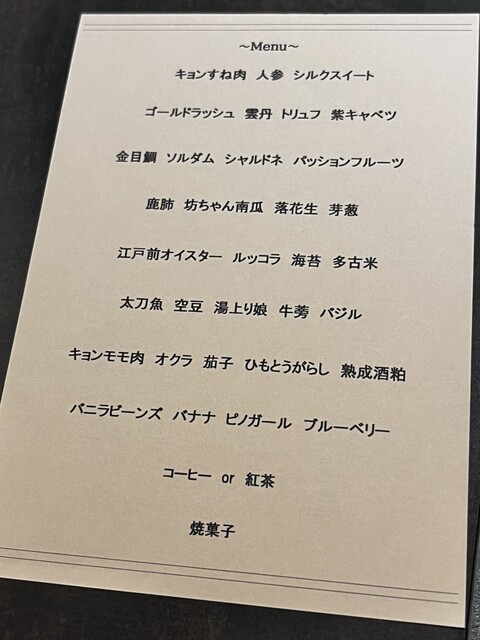 ~Menu~
キョンすね肉 人参 シルクスイート
ゴールドラッシュ 雲丹 トリュフ 紫キャベツ
金目鯛 ソルダム シャルドネ パッションフルーツ
鹿肺 坊ちゃん南瓜 落花生 芽葱
江戸前オイスター ルッコラ 海苔 多古米
太刀魚 空豆 湯上り娘 牛蒡 バジル
キョンモモ肉 オクラ 茄子 ひもとうがらし 熟成酒粕
バニラビーンズ バナナ ピノガール ブルーベリー
コーヒー or 紅茶
焼菓子